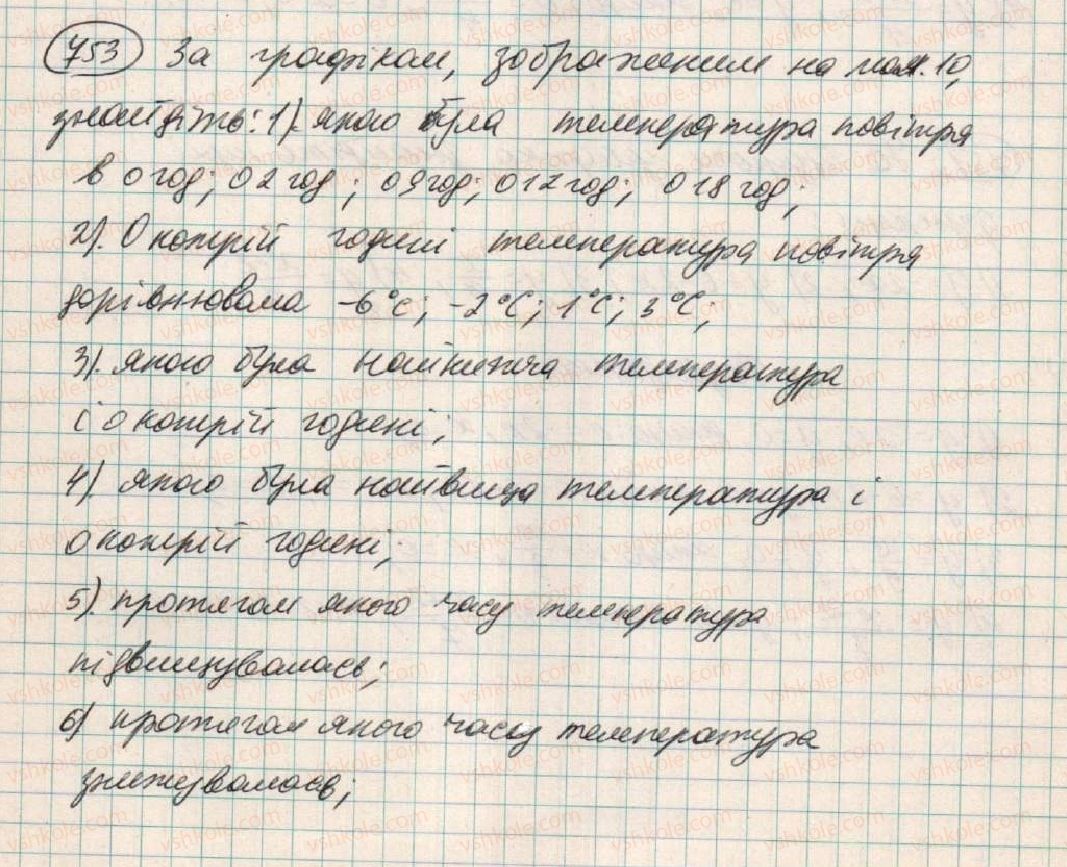 753 За графіком, зображеним на мал. 10,
знайдіть: 1). якою була температура повітря
в 0 год; о 2 год; о 9 год; о 12 год; о 18 год;
2). О котрій годині температура повітря
дорівнювала -6°С; -2°С; 1°С; 3°С;
3). якою була найнижча температура
і о котрій годині;
4). якою була найвища температура і
о котрій годині;
5) протягом якого часу температура
підвищувалась;
6) протягом якого часу температура
знижувалась;